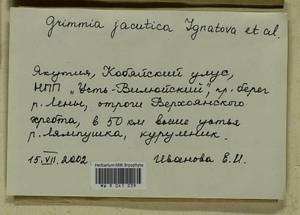 Grimmia jacutica Ignatova et al.
Якутия, Кобяйский улус,
НПП "Усть-Вилюйский", пр. берег
р. Лены, отроги Верхоянского
хребта, в 50 км выше устья
р. Лямпушка, курумник.
15.VII.2002 Иванова Е.И.
Herbarium MW, Bryophyta
MW 9 041 039